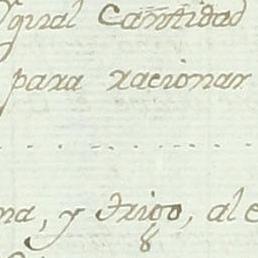 Ygual Cantidad
para racionar
na, y trigo, al e